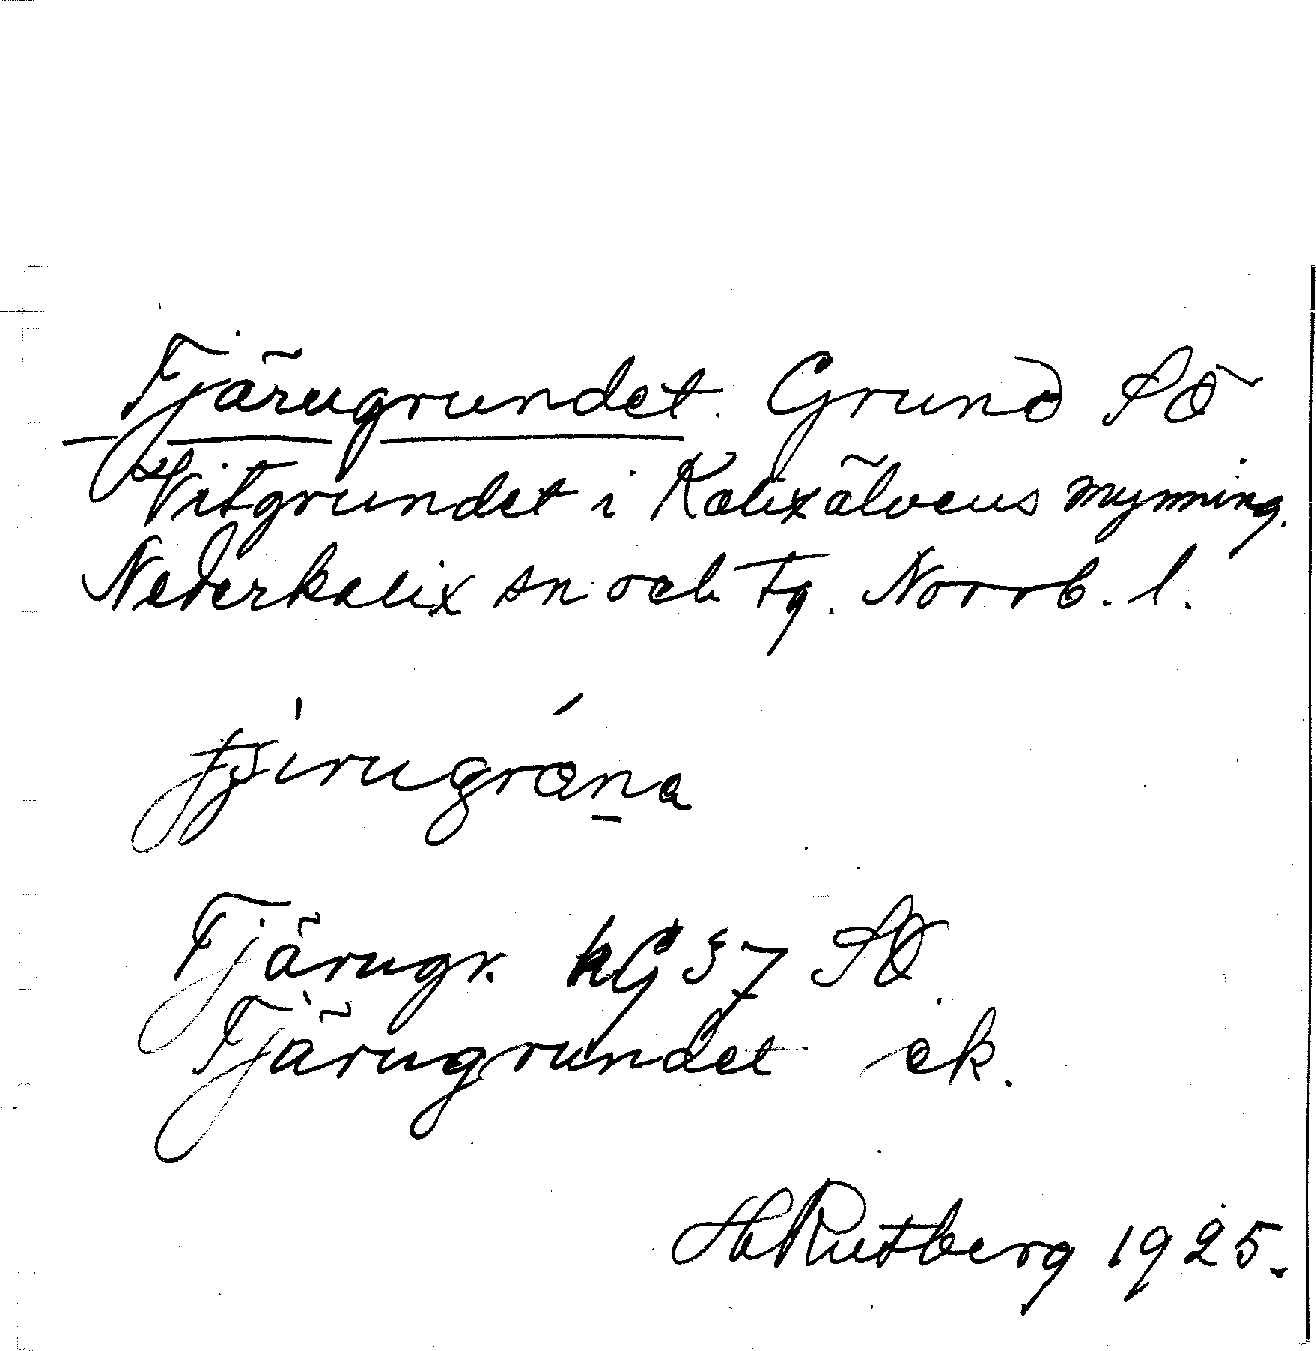 Fjärugrundet. Grund SO
Vitgrundet i Kalixälvens mynning.
Nederkalix sn och tg. Norrb. l.
fjirugrona
Fjärugr. kG 37 SO
Fjärugrundet ek.
H Rutberg 1925.